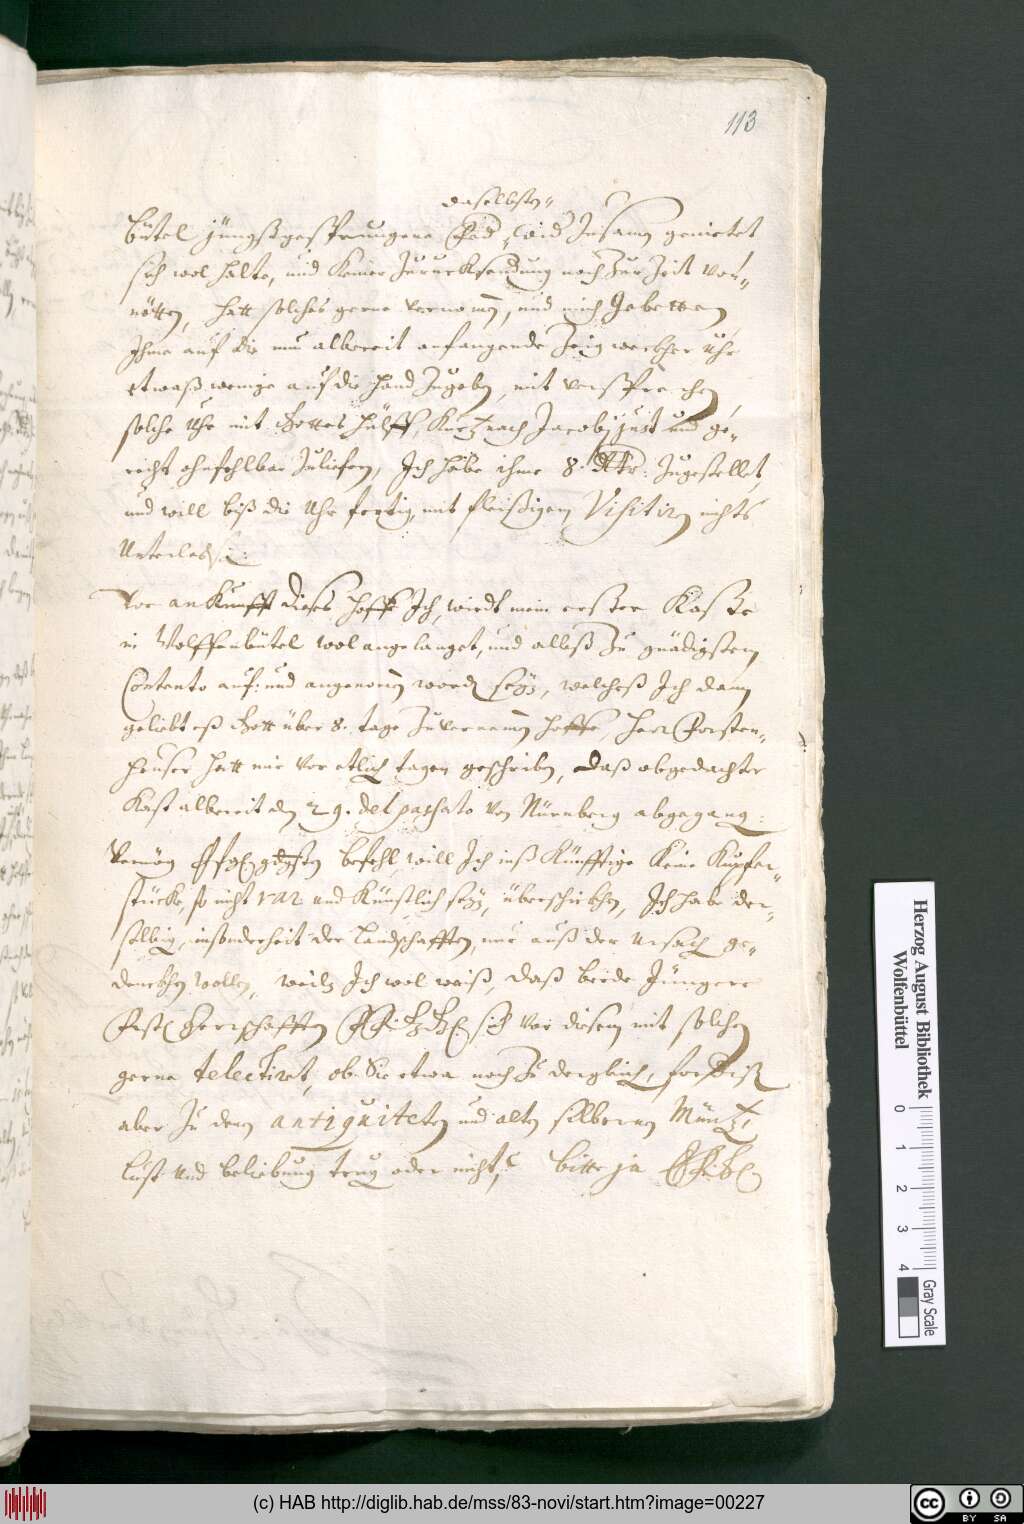 113
daselbsten
bütel jüngst gesprungene Rad, wird Zusamen genietet
sich wol halte, und keiner Zurucksendung noch Zur Zeit von-
nöthen, hatt solches gerne vernomen, und mich gebetten
Ihme auf die nun albereit anfangende Zeigwerkher Uhr
etwaß wenige auf die Hand Zugeben, mit versprechen,
solche Uhr mit Gottes hülff, Kurtz nach Jacobj just und ge-
recht ohnfehlbar Zuliefern, Ich habe ihme 8. Rthr. Zugestellet,
und will biß die Uhr fertig, mit fleißigem Visitirn nichts
Unterlassen.
Vor ankunfft dieses hoffe Ich, wirdt mein erster Kaste
in Wolffenbütel wol angelanget, und alleß Zu gnädigstem
Contento auf: und angenomen worden seyn, welcheß Ich dann
geliebt eß Gott über 8. tage Zuvernemen hoffe, Herr Forsten-
heuser hatt mir vor etlich tagen geschriben, daß obgedachter
Kast albereit den 29. del passato von Nürnberg abgegang:
Vermög gdgsten befehl, will Ich inß Künfftige keine Kupfer-
stücke, so nicht rar und Künstlich seyn, überschickhen, Ich habe der-
selbigen, insonderheit der Landschafften, nur auß der ursach ge-
denckhen wollen, weiln Ich wol weiß, daß beide Jüngere
Herrschafften sich vor diesem mit solchen
gerne delectiret, ob Sie etwa noch Zu dergleich, fordrist
aber Zu denen antiquiteten und alten silbernen Müntzen
lust und beliebung trugen oder nicht, bitte ja
Herzog August Bibliothek
Wolfenbüttel
0 1 2 3 4
Gray Scale
(c) HAB http://diglib.hab.de/mss/83-novi/start.htm?image=00227
cc BY SA